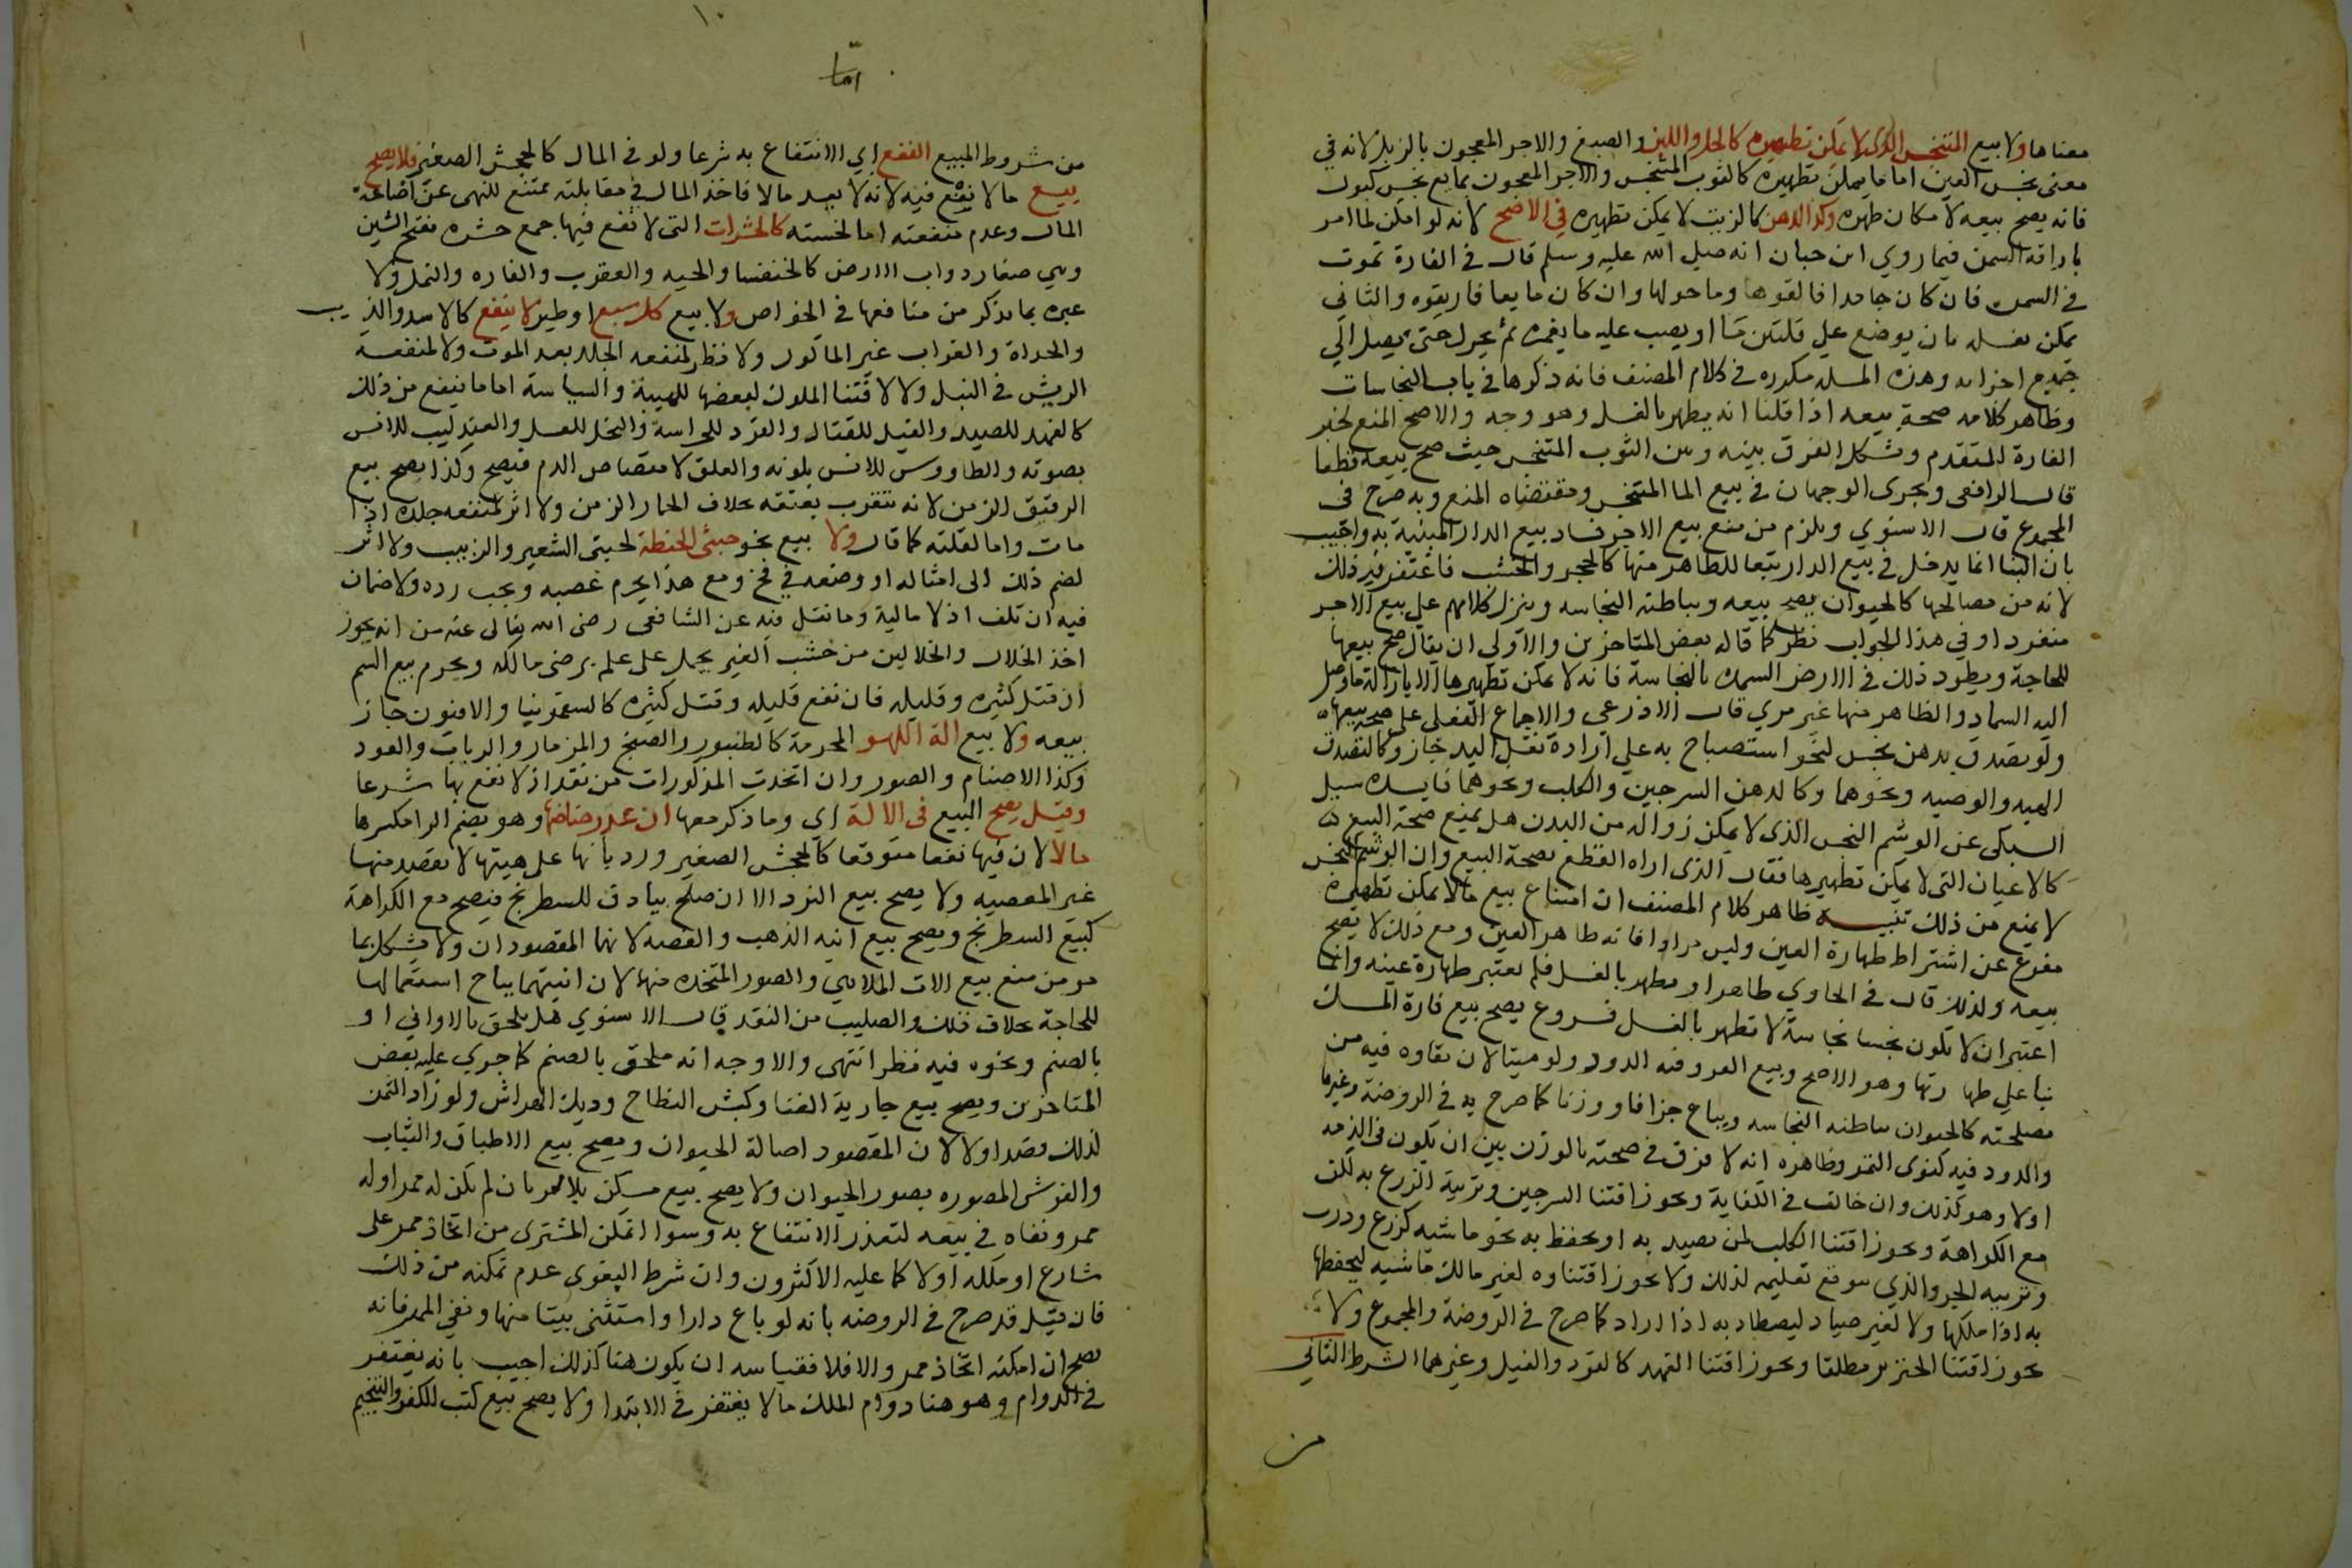 معناها ولا بيع المتنجس الذي لا يمكن تطهيره كالخل واللبن والصبغ والاجر المعجون بالزبل لانه في
معنى نجس العين اما ما يمكن تطهيره كالثوب المتنجس والاجر المعجون بمايع نجس كبول
فانه يصح بيعه لامكان طهره وكذا الدهن كالزيت لا يمكن تطهيره في الاصح لانه لو امكن لما امر
باراقة السمن فيما روي ابن حبان انه صلى الله عليه وسلم قال في الفارة تموت
في السمن فان كان جامدا فالقوها وما حولها وان كان مايعا فاريقوه والثاني
يمكن تغسله بان يوضع على قلتين ما او يصب عليه ما يغمره ثم يحرك حتى يصل الي
جميع اجزايه وهذه المسله مكرره في كلام المصنف فانه ذكرها في باب النجاسات
وظاهر كلامه صحة بيعه اذا قلنا انه يطهر بالغسل وهو وجه والاصح المنع لخبر
الفارة المتقدم ويشكل الفرق بينه وبين الثوب المتنجس حيث صح بيعه قطعا
قال الرافعي ويجرى الوجهان في بيع الما المتنجس ومقتضاه المنع وبه صرح في
المجموع قال الاسنوي ويلزم من منع بيع الاجر فساد بيع الدار المبنية به واجيب
بان البنا انما يدخل في بيع الدار تبعا للطاهر منها كالحجر والخشب فاغتفر فيه ذلك
لانه من مصالحها كالحيوان يصح بيعه وبباطنه النجاسه وينزل كلامهم على بيع الاجر
منفردا وفي هذا الجواب نظر كما قاله بعض المتاخرين والاولى ان يقال صح بيعها
للحاجة ويطرد ذلك في الارض المسمدة بالنجاسة فانه لا يمكن تطهيرها الا بازالة ما وصل
اليه السماد والظاهر منها غير مري قال الاذرعي والاجماع الفعلي على صحة بيعها
ولو تصدق بدهن نجس لنحو استصباح به على ارادة نقل اليد جاز وكالتصدق
الهبه والوصيه ونحوهما وكالدهن السرجين والكلب ونحوهما فايده سيل
السبكى عن الوشم النجس الذي لا يمكن زواله من البدن هل يمنع صحة البيع
كالاعيان التى لا يمكن تطهيرها فقال الذى اراه القطع بصحة البيع وان الوشم النجس
لا يمنع من ذلك تنبيه ظاهر كلام المصنف ان امتناع بيع ما لا يمكن تطهيره
مفرع عن اشتراط طهارة العين وليس مرادا فانه طاهر العين ومع ذلك لا يصح
بيعه ولذلك قال في الحاوي طاهر او يطهر بالغسل فلم يعتبر طهارة عينه وانما
اعتبر ان لا يكون نجسا نجاسة لا تطهر بالغسل فروع يصح بيع فارة المسك
بنا على طهارتها وهو الاصح وبيع القز وفيه الدود ولو ميتا لان بقاوه فيه من
مصلحته كالحيوان بباطنه النجاسه ويباع جزافا ووزنا كما صرح به في الروضة وغيرها
والدود فيه كنوى التمر وظاهره انه لا فرق في صحته بالوزن بين ان يكون في الذمه
اولا وهو كذلك وان خالف في الكفاية ويجوز اقتنا السرجين وتربية الزرع به لكن
مع الكراهة ويجوز اقتنا الكلب لمن يصيد به او يحفظ به نحو ماشيه كزرع ودرب
وتربيه الجرو الذي يتوقع تعليمه لذلك ولا يجوز اقتناوه لغير مالك ماشيه ليحفظها
به اذا ملكها ولا لغير صياد ليصطاد به اذا اراد كما صرح في الروضة والمجموع ولا
يجوز اقتنا الخنزير مطلقا ويجوز اقتنا الفهد كالقرد والفيل وغيرهما الشرط الثاني
من
١٠
اما
من شروط المبيع النفع اي الانتفاع به شرعا ولو في المال كالجحش الصغير فلا يصح
بيع ما لا نفع فيه لانه لا يعد مالا فاخذ المال في مقابلته ممتنع للنهي عن اضاعة
المال وعدم منفعته اما لخسته كالحشرات التى لا نفع فيها جمع حشره بفتح الشين
وهي صغار دواب الارض كالخنفسا والحيه والعقرب والفاره والنمل ولا
عبرة بما يذكر من منافعها في الخواص ولا بيع كل سبع او طير لا ينفع كالاسد والذيب
والحداة والغراب غير الماكول ولا نظر لمنفعه الجلد بعد الموت ولا لمنفعة
الريش في النبل ولا لاقتنا الملوك لبعضها للهيبة والسياسة اما ما ينفع من ذلك
كالفهد للصيد والفيل للقتال والقرد للحراسة والنحل للعسل والعندليب للانس
بصوته والطاووس للانس بلونه والعلق لامتصاص الدم فيصح وكذا يصح بيع
الرقيق الزمن لانه يتقرب بعتقه بخلاف الحمار الزمن ولا اثر لمنفعه جلده اذا
مات واما لقلته كما قال ولا بيع نحو حبتى الحنطة لحبتى الشعير والزبيب ولا اثر
لضم ذلك الى امثاله او وضعه في فخ ومع هذا يحرم غصبه ويجب رده ولا ضمان
فيه ان تلف اذ لا مالية وما نقل فيه عن الشافعى رضى الله تعالى عنه من انه يجوز
اخذ الخلال والخلالين من خشب الغير يحمل على علم برضى مالكه ويحرم بيع السم
ان قتل كثيره وقليله فان نفع قليله وقتل كثيره كالسقمونيا والافيون جاز
بيعه ولا بيع الة اللهو المحرمة كالطنبور والصنج والمزمار والرباب والعود
وكذا الاصنام والصور وان اتخذت المذكورات من نقد اذ لا نفع بها شرعا
وقيل يصح البيع فى الالة اي وما ذكر معها ان عد رضاضها وهو بضم الرا مكسرها
مالا لان فيها نفعا متوقعا كالجحش الصغير ورد بانها على هيتها لا يقصد منها
غير المعصيه ولا يصح بيع النرد الا ان صلح بيادق للشطرنج فيصح مع الكراهة
كبيع الشطرنج ويصح بيع انيه الذهب والفضه لانهما المقصودان ولا يشكل بما
مر من منع بيع الات الملاهي والصور المتخذه منها لان انيتهما يباح استعمالها
للحاجة بخلاف تلك والصليب من النقد قال الاسنوي هل يلحق بالاواني او
بالصنم ونحوه فيه نظر انتهى والاوجه انه ملحق بالصنم كما جرى عليه بعض
المتاخرين ويصح بيع جارية الغنا وكبش النطاح وديك الهراش ولو زاد الثمن
لذلك قصد اولا لان المقصود اصالة الحيوان ويصح بيع الاطباق والثياب
والفرش المصوره بصور الحيوان ولا يصح بيع مسكن بلا ممر بان لم يكن له ممر اوله
ممر ونفاه في بيعه لتعذر الانتفاع به وسوا اتمكن المشترى من اتخاذ ممر على
شارع او ملكه اولا كما عليه الاكثرون وان شرط البغوى عدم تمكنه من ذلك
فان قيل قد صرح في الروضه بانه لو باع دارا واستثنى بيتا منها ونفى الممر فانه
يصح ان امكنه اتخاذ ممر والا فلا فقياسه ان يكون هنا كذلك اجيب بانه يغتفر
في الدوام وهو هنا دوام الملك ما لا يغتفر في الابتدا ولا يصح بيع كتب الكفر والتنجيم